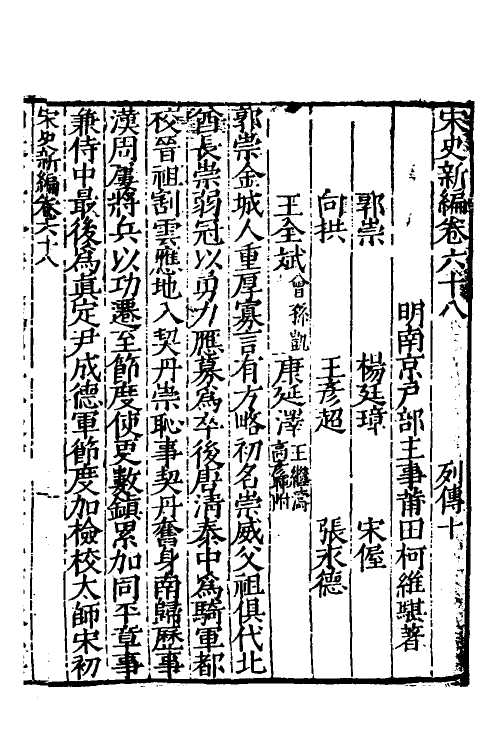 宋史新編卷六十八 列傳十
明南京戸部主事莆田柯維騏著
郭崇 楊廷璋 宋偓
向拱 王彥超 張永德
王全斌 曾孫凱 康延澤 王繼濤 高彥暉附
郭崇金城人重厚寡言有方略初名崇威父祖俱代北
酋長崇弱冠以勇力應募為卒後唐清泰中為騎軍都
校晉祖割雲應地入契丹崇恥事契丹奮身南歸歷事
漢周屢將兵以功遷至節度使更數鎮累加同平章事
兼侍中最後為真定尹成德軍節度加檢校太師宋初
宋史新編卷六十八 一